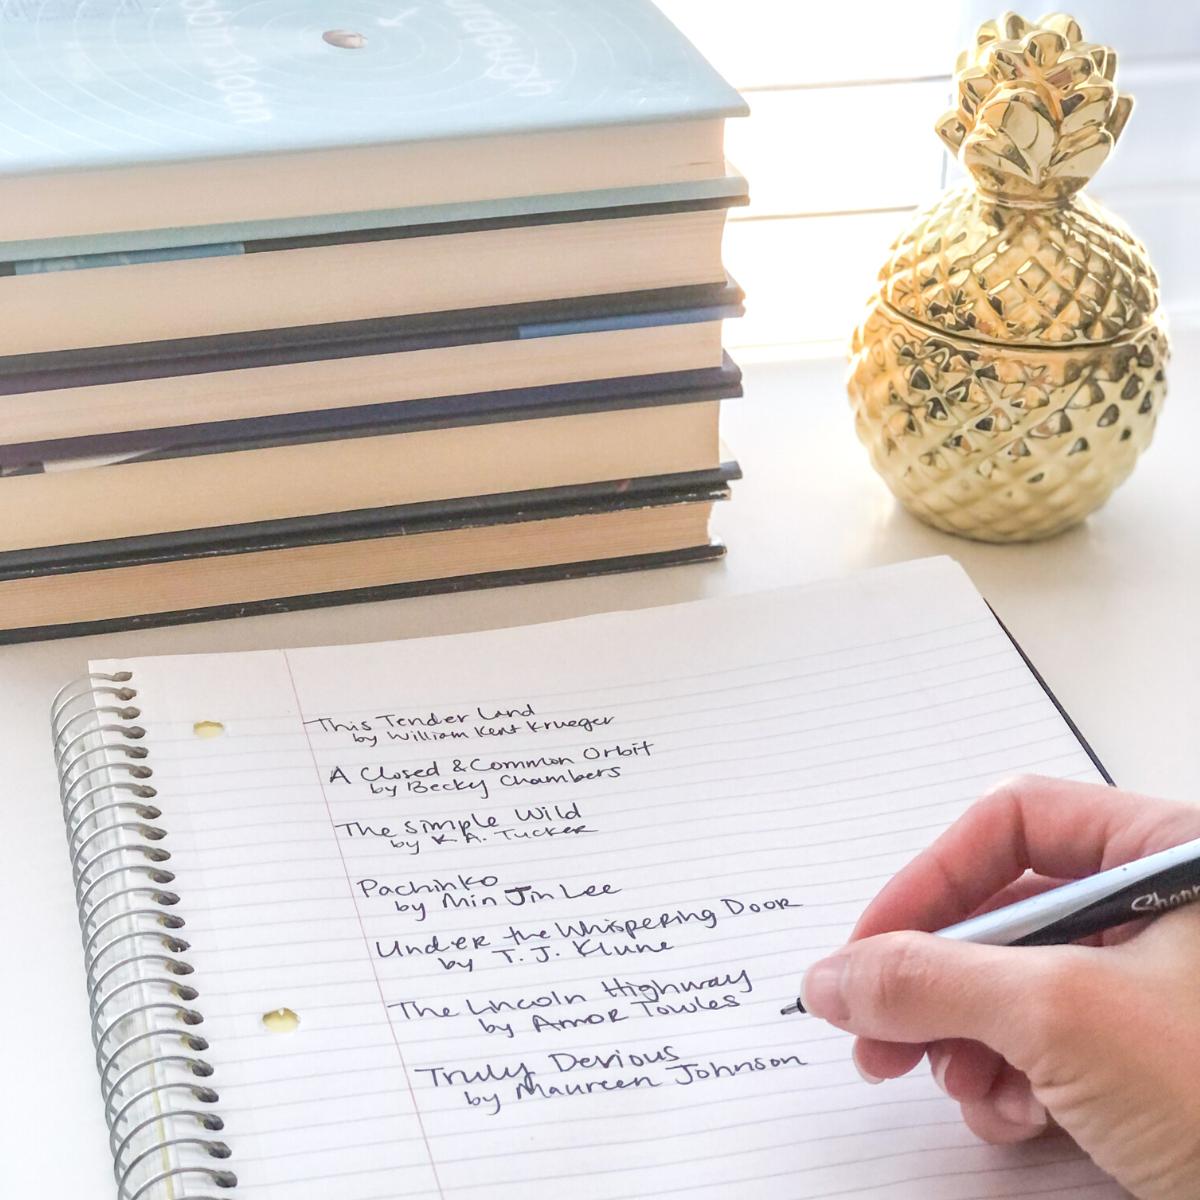 Robin Sloan
Sourdough
This Tender Land
by William Kent Krueger
A Closed & Common Orbit
by Becky Chambers
The Simple Wild
by K.A. Tucker
Pachinko
by Min Jin Lee
Under the Whispering Door
by T. J. Klune
The Lincoln Highway
by Amor Towles
Truly Devious
by Maureen Johnson